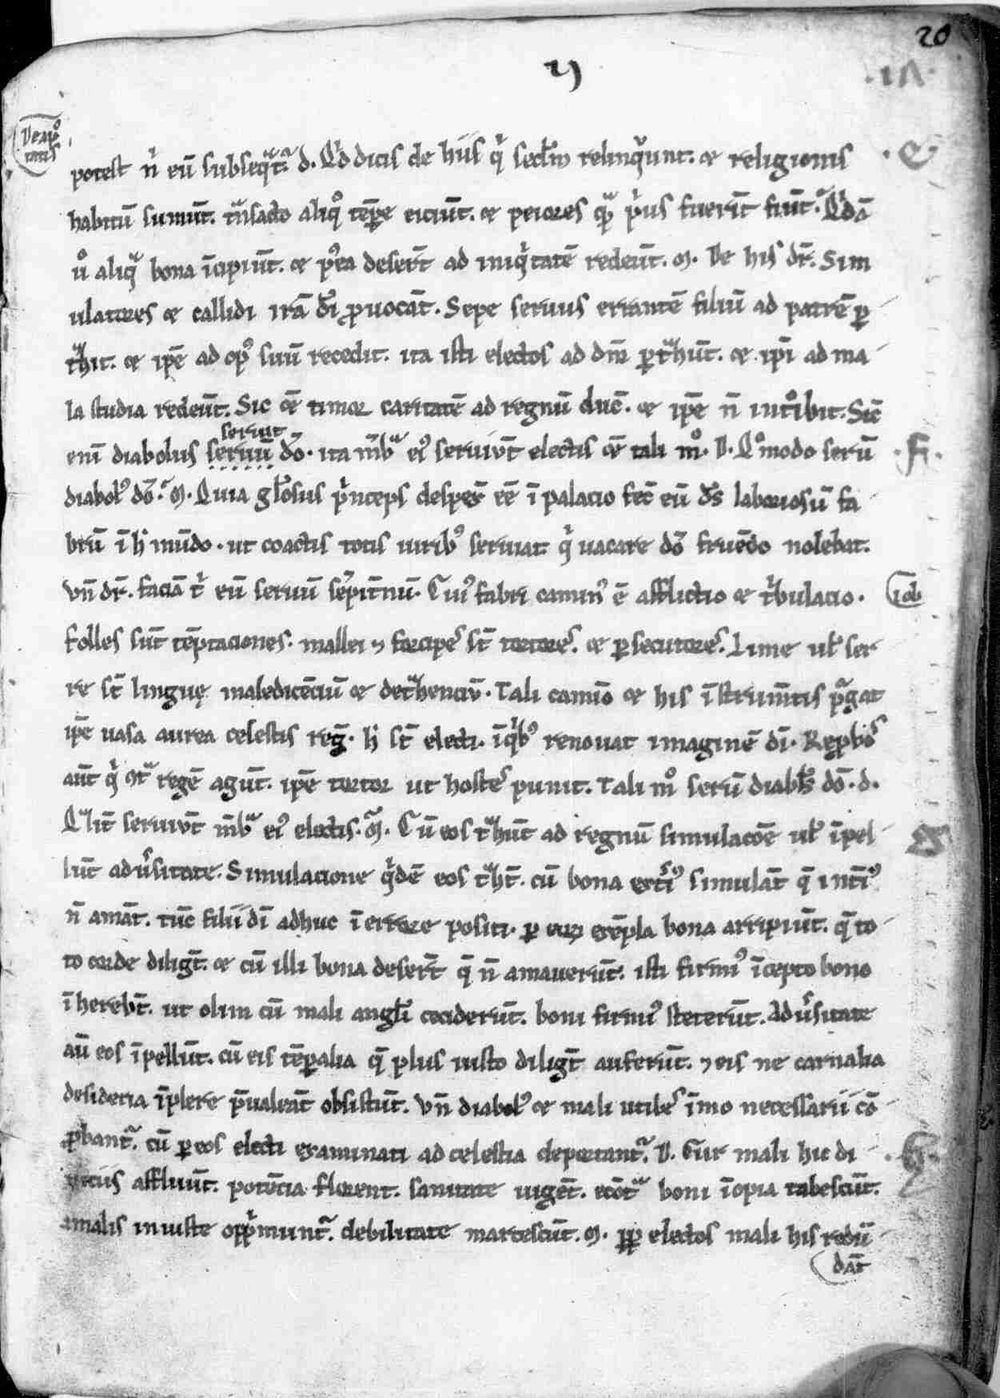 20
potest n̄ eū subseq̄t᷑. d. Q'd dicis de hiis q̇ sec̄lm relinq̄unt. ⁊ religionis
habitū sumūt. t̄nsacto aliq̊ tēp̱e eiciūt. ⁊ peiores q̄ p̓us fuerīt fiūt. Q̄dā
ů aliq̄ bona īcipiūt. ⁊ p᷒ea deserūt ad iniq̇tatē redeūt. M. De his dr̄. Sim
ulatores ⁊ callidi irā dī ꝓuocāt. Sepe seruus errantē filiū ad patrē ꝑ
t̄hit. ⁊ ip̄e ad op᷒ suū recedit. ita isti electos ad dn̄m ꝑt̄hūt. ⁊ ip̄i ad ma
la studia redeūt. Sic ⁊ē timor caritatē ad regnū duc̄. ⁊ ip̄e n̄ int̊ibit. Sic̄
seruit
enī diabolus seruū dō. ita mēb̄ ei᷒ seruiūt electis ⁊ē tali m̊. D. Q̊modo serū
diabol᷒ dō. M. Quia gl̄osus p̓nceps despex̄ eē ī palacio fec̄ eū d̄s laboriosū fa
brū ī h̓ mūdo. ut coactis totis uirib᷒ seruiat q̇ uacare dō fruēdo nolebat.
Vn̄ dr̄. faciā t̓ eū seruū sēpit̄nū. Cui᷒ fabri camin᷒ ē afflictio ⁊ t̓bulacio.
Iob
folles sūt tēptaciones. mallei ⁊ forcipes st̄ tortores. ⁊ ꝑsecutores. Lime ul̄ ser
re st̄ linguę maledicēciū ⁊ det̄henciū. Tali camio ⁊ his īstrum̄tis p̄gat
ip̄e uasa aurea celestis reḡ. h̓ st̄ electi. ī q̇b᷒ renouat imaginē dī. Reꝓbos
aūt q̇ ꝯt̄ regē agūt. ip̄e tortor ut hostes punit. Tali m̊ serū diabl̄s dō. d.
Q̄lit̄ seruiūt mēb̄ ei᷒ electis. M. Cū eos t̄hūt ad regnū simulacōe ul̄ īpel
lūt adūsitate. Simulacione q̇dē eos t̄hūt. cū bona ext̓i᷒ simulāt q̄ int̄i᷒
n̄ amāt. tūc filii dī adhuc ī errore positi. ꝑ eoꝝ exēpla bona arripiūt. q̄ to
to corde diligūt. ⁊ cū illi bona deserūt q̄ n̄ amauerūt. isti firmi᷒ īcepto bono
īherebūt. ut olim cū mali angl̄i ceciderūt. boni firmi᷒ steterūt. Adūsitate
aū eos īpellūt. cū eis tēꝑalia q̄ plus iusto diligūt auferūt. ⁊ eis ne carnalia
desideria īplere p̄ualeāt obsistūt. Vn̄ diabol᷒ ⁊ mali utiles īmo necessarii cō
ꝓbant᷑. cū ꝑ eos electi examinati ad celestia deportant᷑. D. Cur mali hic di
uiciis affluūt. potēcia florent. sanitate uigēt. ecōt̄ boni īopia tabescūt.
a malis iniuste opp̓munt᷑. debilitate marcescūt. M. ꝓp̄ electos mali his redū
dāt